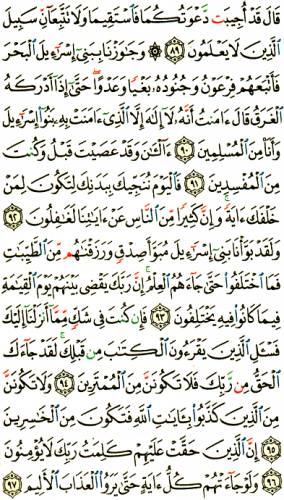 قَالَ قَدْ أُجِيبَت دَّعْوَتُكُمَا فَٱسْتَقِيمَا وَلَا تَتَّبِعَآنِّ سَبِيلَ
ٱلَّذِينَ لَا يَعْلَمُونَ ٨٩ ۞ وَجَٰوَزْنَا بِبَنِىٓ إِسْرَٰٓءِيلَ ٱلْبَحْرَ
فَأَتْبَعَهُمْ فِرْعَوْنُ وَجُنُودُهُۥ بَغْيًا وَعَدْوًا حَتَّىٰٓ إِذَآ أَدْرَكَهُ
ٱلْغَرَقُ قَالَ ءَامَنتُ أَنَّهُۥ لَآ إِلَٰهَ إِلَّا ٱلَّذِىٓ ءَامَنَتْ بِهِۦ بَنُوٓا۟ إِسْرَٰٓءِيلَ
وَأَنَا۠ مِنَ ٱلْمُسْلِمِينَ ٩٠ ءَآلْـَٰٔنَ وَقَدْ عَصَيْتَ قَبْلُ وَكُنتَ
مِنَ ٱلْمُفْسِدِينَ ٩١ فَٱلْيَوْمَ نُنَجِّيكَ بِبَدَنِكَ لِتَكُونَ لِمَنْ
خَلْفَكَ ءَايَةً ۚ وَإِنَّ كَثِيرًا مِّنَ ٱلنَّاسِ عَنْ ءَايَٰتِنَا لَغَٰفِلُونَ ٩٢
وَلَقَدْ بَوَّأْنَا بَنِىٓ إِسْرَٰٓءِيلَ مُبَوَّأَ صِدْقٍ وَرَزَقْنَٰهُم مِّنَ ٱلطَّيِّبَٰتِ
فَمَا ٱخْتَلَفُوا۟ حَتَّىٰ جَآءَهُمُ ٱلْعِلْمُ ۚ إِنَّ رَبَّكَ يَقْضِى بَيْنَهُمْ يَوْمَ ٱلْقِيَٰمَةِ
فِيمَا كَانُوا۟ فِيهِ يَخْتَلِفُونَ ٩٣ فَإِن كُنتَ فِى شَكٍّ مِّمَّآ أَنزَلْنَآ إِلَيْكَ
فَسْـَٔلِ ٱلَّذِينَ يَقْرَءُونَ ٱلْكِتَٰبَ مِن قَبْلِكَ ۚ لَقَدْ جَآءَكَ
ٱلْحَقُّ مِن رَّبِّكَ فَلَا تَكُونَنَّ مِنَ ٱلْمُمْتَرِينَ ٩٤ وَلَا تَكُونَنَّ
مِنَ ٱلَّذِينَ كَذَّبُوا۟ بِـَٔايَٰتِ ٱللَّهِ فَتَكُونَ مِنَ ٱلْخَٰسِرِينَ
٩٥ إِنَّ ٱلَّذِينَ حَقَّتْ عَلَيْهِمْ كَلِمَتُ رَبِّكَ لَا يُؤْمِنُونَ
٩٦ وَلَوْ جَآءَتْهُمْ كُلُّ ءَايَةٍ حَتَّىٰ يَرَوُا۟ ٱلْعَذَابَ ٱلْأَلِيمَ ٩٧